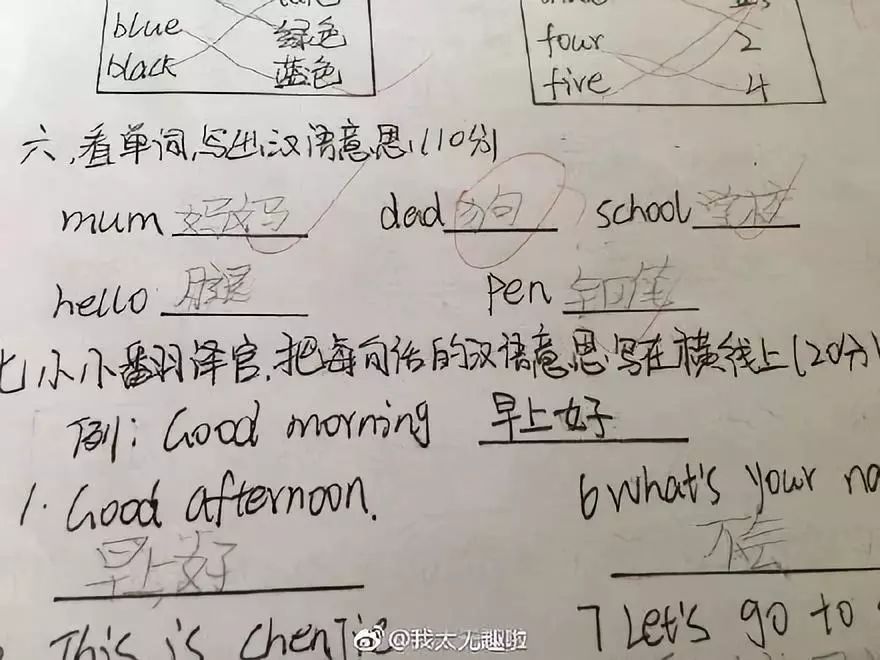 blue 绿色 four 2
black 蓝色 five 4
六、看单词,写出汉语意思(10分)
mum 妈妈 dad 狗 school 学校
hello 腿 pen 钢笔
七 小小翻译官,把每句话的汉语意思写在横线上(20分)
例: Good morning 早上好
1. Good afternoon. 6 What's your
早上好 不会
This is 7 Let's go to
@我太无趣啦